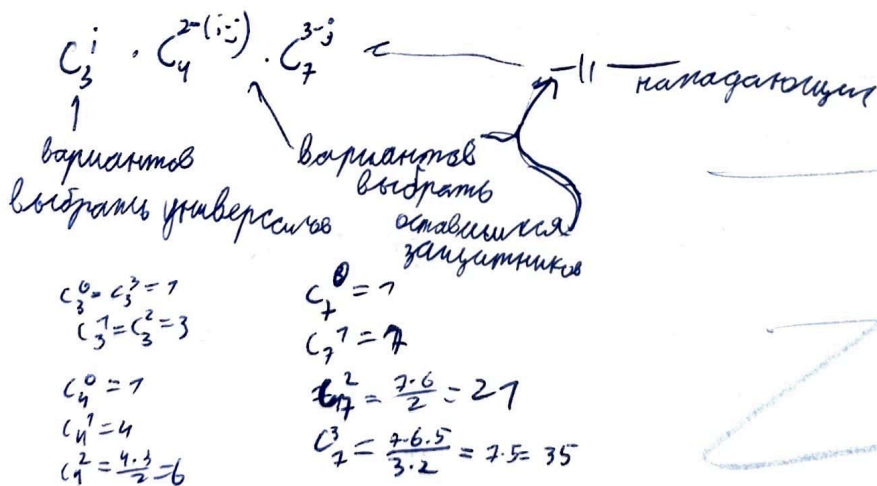 C_3^i · C_4^{2-(i-j)} · C_7^{3-j} ← -||- нападающих
вариантов выбрать универсалов
вариантов выбрать оставшихся защитников
C_3^0 = C_3^3 = 1
C_3^1 = C_3^2 = 3
C_4^0 = 1
C_4^1 = 4
C_4^2 = \frac{4·3}{2} = 6
C_7^0 = 1
C_7^1 = 7
C_7^2 = \frac{7·6}{2} = 21
C_7^3 = \frac{7·6·5}{3·2} = 7·5 = 35